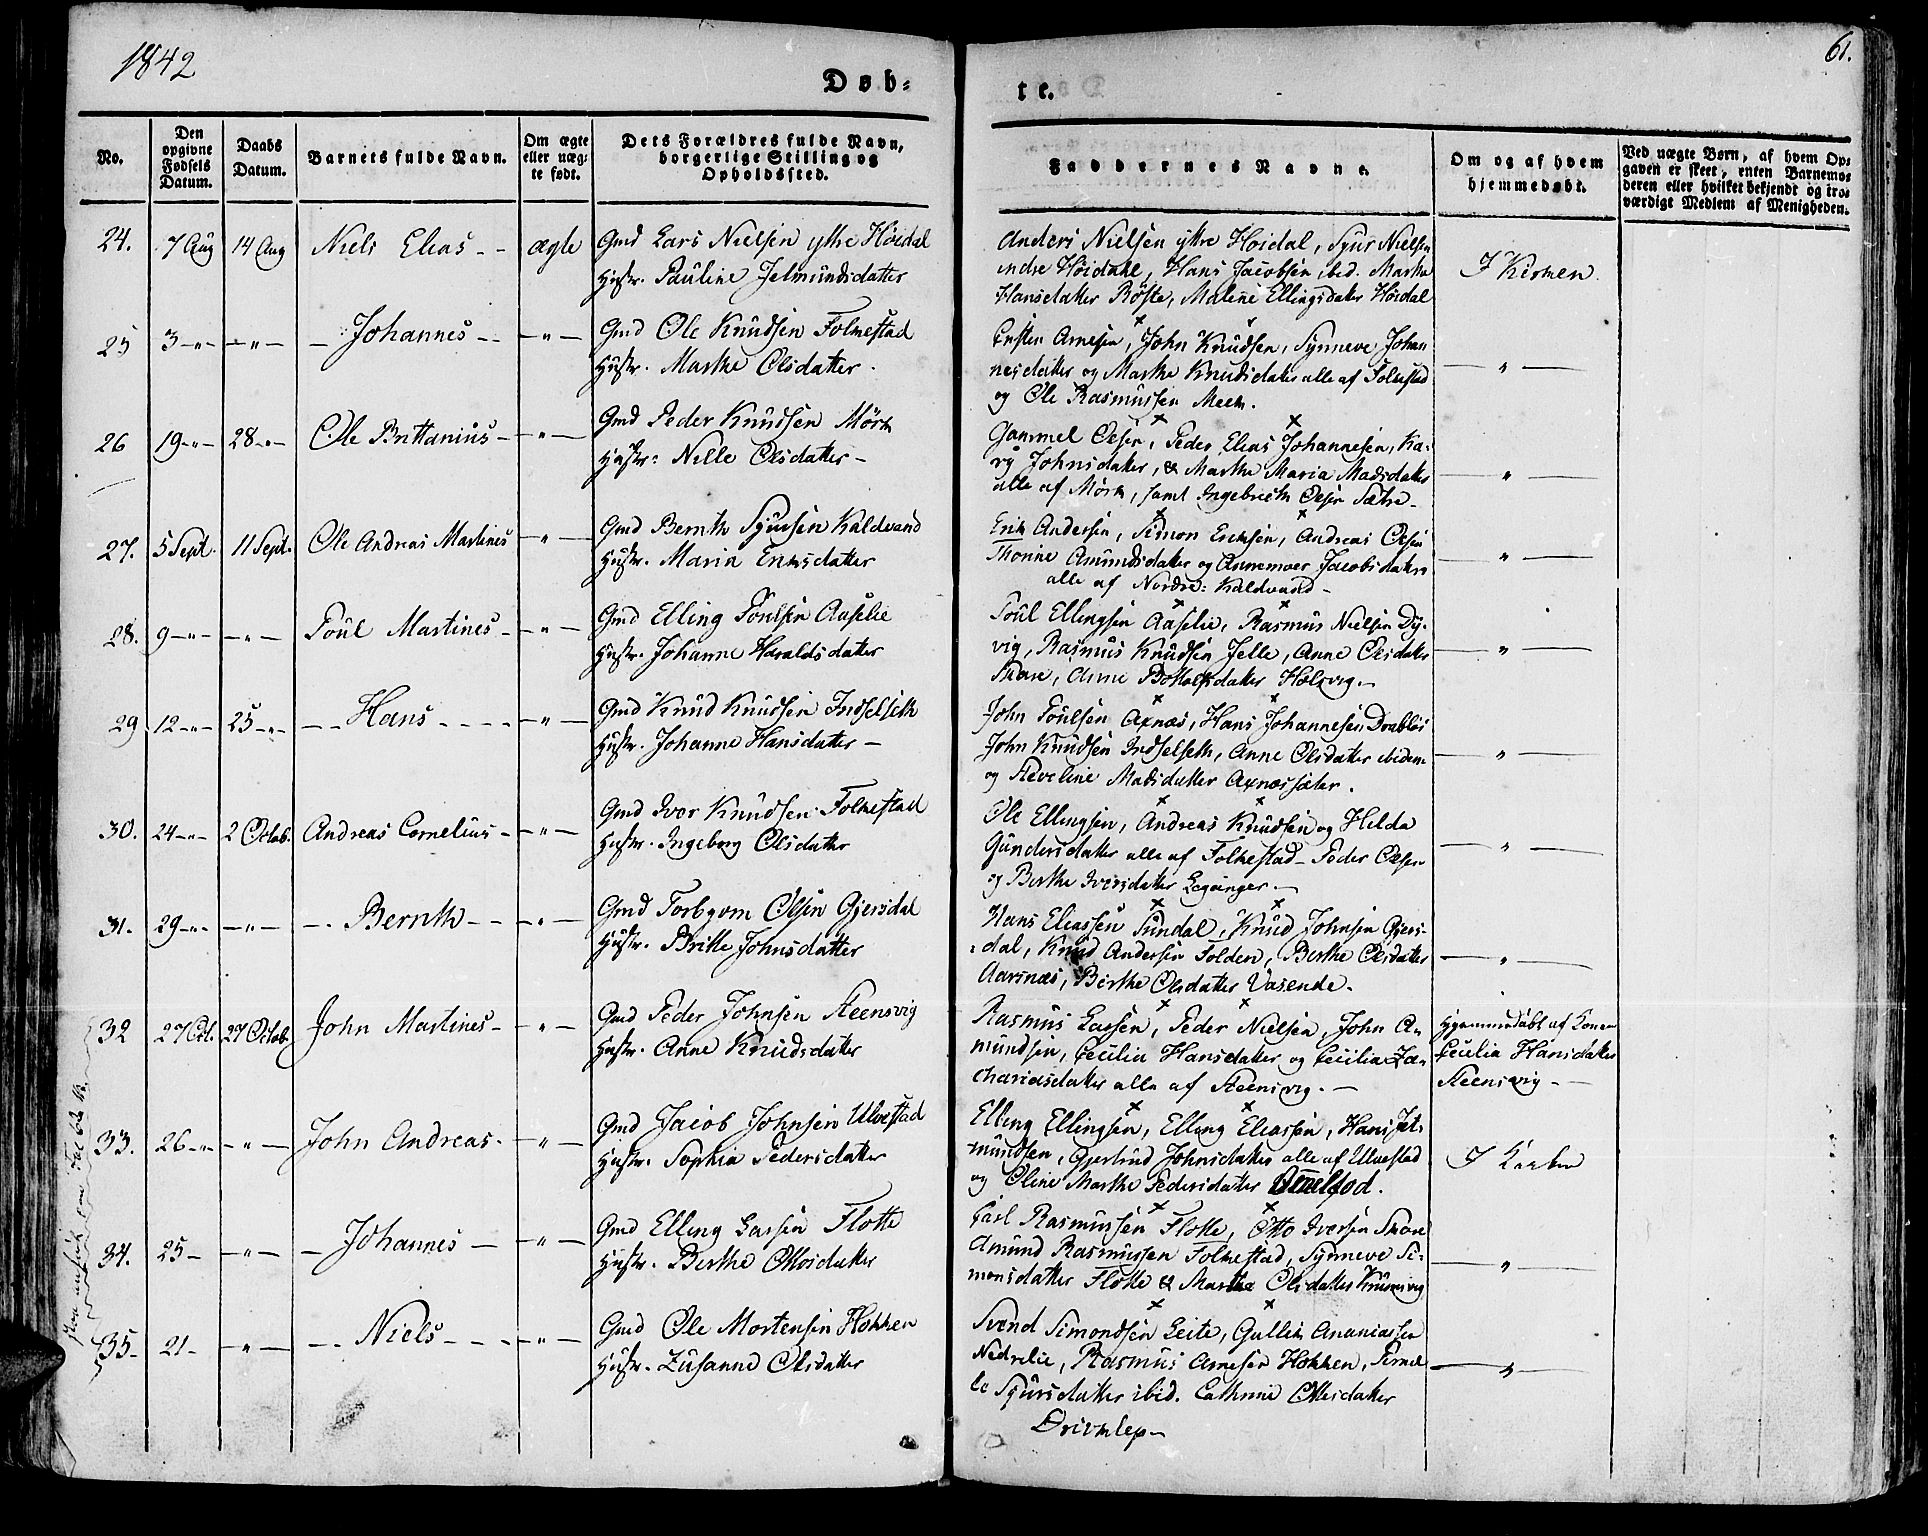 1842
61.
Døb-
te.
No.
Den opgivne Fødsels Datum.
Daabs Datum.
Barnets fulde Navn.
Om ægte eller uæg-te født.
Dets Forældres fulde Navn, borgerlige Stilling og Opholdssted.
Faddernes Navne.
Om og af hvem hjemmedøbt.
Ved uægte Børn, af hvem Op-gaven er skeet, enten Barnemo-deren eller hvilket bekjendt og tro-værdigt Medlem af Menigheden.
24. 7 Aug 14 Aug Niels Elias - - ægte Gmd Lars Nielsen ytre Høidal
Hustr. Pauline Jelmundsdatter
Anders Nielsen ytre Høidal, Sjur Nielsen
indre Høidahl, Hans Jacobsen ibid. Marthe
Hansdatter Røste, Malene Ellingsdatter Høidal
I Kirken
25 3 -"- -"- - Johannes - - -"- Gmd Ole Knudsen Folkestad
Hustr. Marthe Olsdatter.
Ensten Arnesen, John Knudsen, Synneve Johan
nesdatter og Marthe Knudsdatter alle af Folkestad
og Ole Rasmussen Meek.
-"-
26 19 -"- 28 -"- Ole Brittanius - -"- Gmd Peder Knudsen Mørk
Hustr: Nille Olsdatter -
Gammel Olsen, Peder Elias Johannesen, Ka-
ry Johnsdatter, & Marthe Maria Madsdatter
alle af Mørk, samt Ingebrigt Olsen Sætre -
-"-
27. 5 Sept. 11 Sept. Ole Andreas Martines -"- Gmd Bernth Sjursen Kaldvand
Hustr. Maria Eriksdatter
Erik Andersen, Simon Eriksen, Andreas Olsen
Thorine Amundsdatter og Annemoer Jacobsdatter
alle af Nordre: Kaldvand -
-"-
28. 9 -"- -"- Poul Martines - -"- Gmd Elling Poulsen Aaselie
Hustr. Johanne Haraldsdatter
Poul Ellingsen Aaselie, Rasmus Nielsen Dy-
vig, Rasmus Knudsen Jelle, Anne Olsdatter
Skare, Anne Botholfsdatter Holsvig.-
-"-
29 12 -"- 25 -"- - - Hans - - - - -"- Gmd Knud Knudsen Indselseth
Hustr. Johanne Hansdatter -
John Poulsen Axnæs, Hans Johannesen Drabløs
John Knudsen Indselseth, Anne Olsdatter ibidem
og Steveline Madsdatter Axnæssæter.
-"-
30. 24 -"- 2 Octob. Andreas Cornelius - -"- Gmd Ivor Knudsen Folkestad
Hustr. Ingeborg Olsdatter
Ole Ellingsen, Andreas Knudsen og Hilda
Gundersdatter alle af Folkestad - Peder Olsen
og Berthe Iversdatter Leganger -
-"-
31. 29 -"- -"- - Bernth - - -"- Gmd Torbjørn Olsen Gjersdal
Hustr. Britte Johnsdatter
Hans Eliassen Sundal, Knud Johnsen Gjers-
dal, Knud Andersen Folden, Berthe Olsdatter
Aarsnæs, Berthe Olsdatter Vasende.
-"-
32 27 Oct. 27 Octob. John Martines - -"- Gmd Peder Johnsen Steensvig
Hustr. Anne Knudsdatter
Rasmus Larsen, Peder Nielsen, John A-
mundsen, Cecilia Hansdatter og Cecilia Za-
chariasdatter alle af Steensvig. -
Hjemmedøbt af Konen
Cecilia Hansdatter
Steensvig -
33. 26 -"- -"- John Andreas - -"- Gmd Jacob Johnsen Ulvestad
Hustr. Sophia Pedersdatter
Elling Ellingsen, Elling Eliassen, Hans Jet-
mundsen, Gjertrud Johnsdatter alle af Ulvestad
og Oline Marthe Pedersdatter
I Kirken
34. 25 - -"- - Johannes - -"- Gmd Elling Larsen Flotte
Hustr. Berthe Ottosdatter
Carl Rasmussen Flotte, Otto Iversen Skare
Amund Rasmussen Folkestad, Synneve Si-
monsdatter Flotte & Martha Olsdatter
-"-
35 - 21 - -"- - Niels - - - -"- Gmd Ole Mortensen Hokken
Hustr. Zusanne Olsdatter
Svend Simondsen Leite, Gullik Ananiassen
Nedrelie, Rasmus Arnesen Hokken, Pernil-
le Sjursdatter ibid. Cathrine Ottesdatter
Driveklep -
-"-